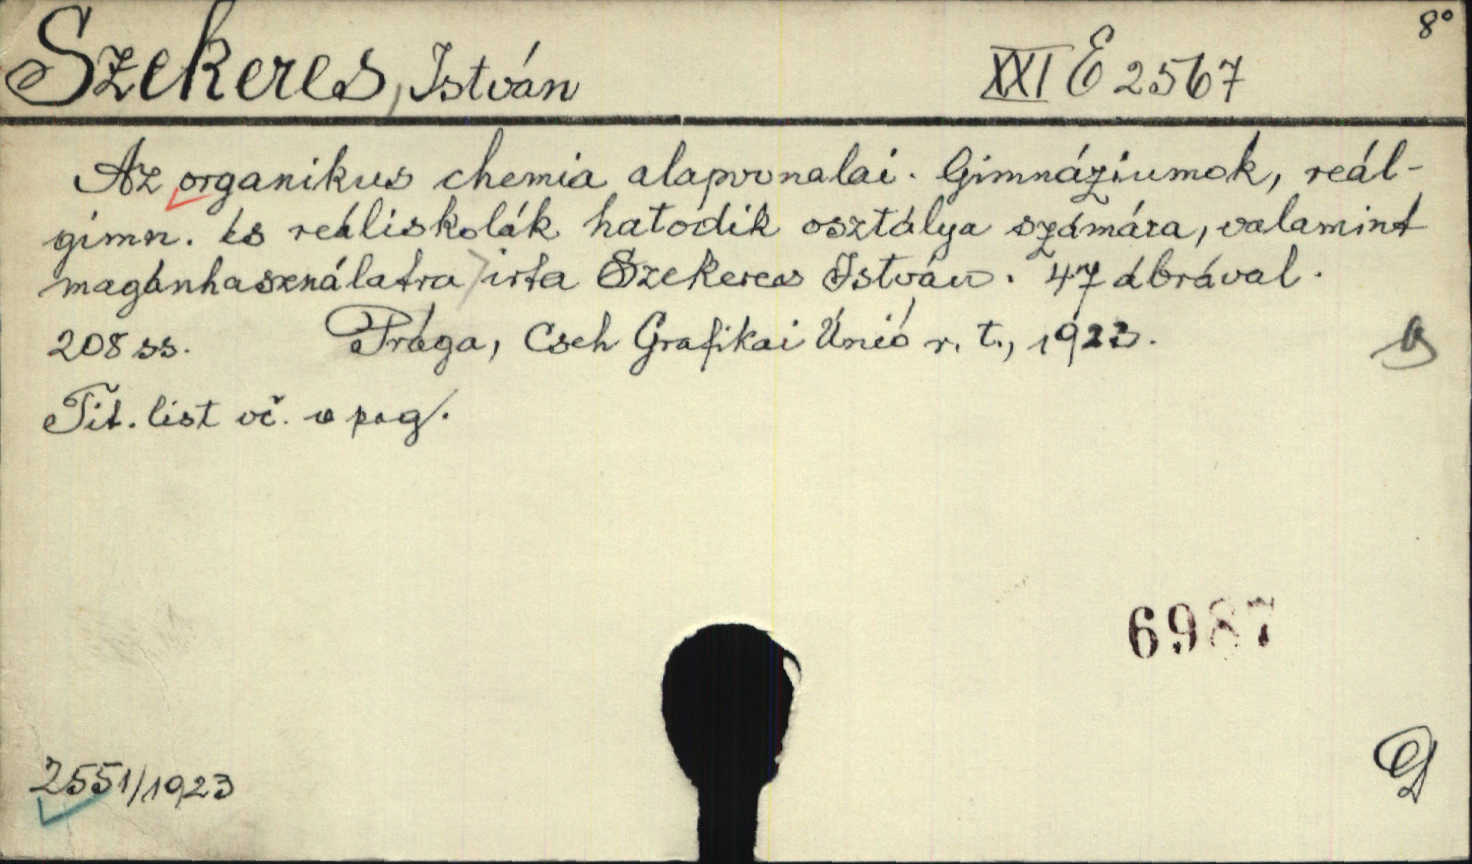 8°
Szekeres, István XXI E 2567
Az organikus chemia alapvonalai. Gimnáziumok, reál-
gimn. és reáliskolák hatodik osztálya számára, valamint
magánhasználatra irta Szekeres István. 47 ábrával.
208 ss. Prága, Cseh Grafikai Únió r. t., 1923.
Tit. list vč. v pag.
6987
2551/1923